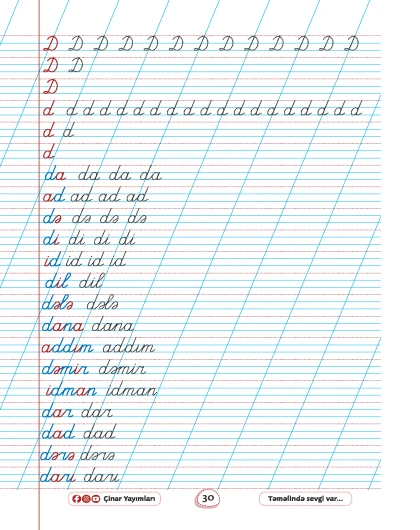 D D D D D D D D D D D D D
D D
D
d d d d d d d d d d d d d d d d d d d
d d
d
da da da da
ad ad ad ad
də də də də
di di di di
id id id id
dil dil
dələ dələ
dana dana
addım addım
dəmir dəmir
idman idman
dar dar
dad dad
dərə dərə
darı darı
Çinar Yayımları 30 Təməlində sevgi var...